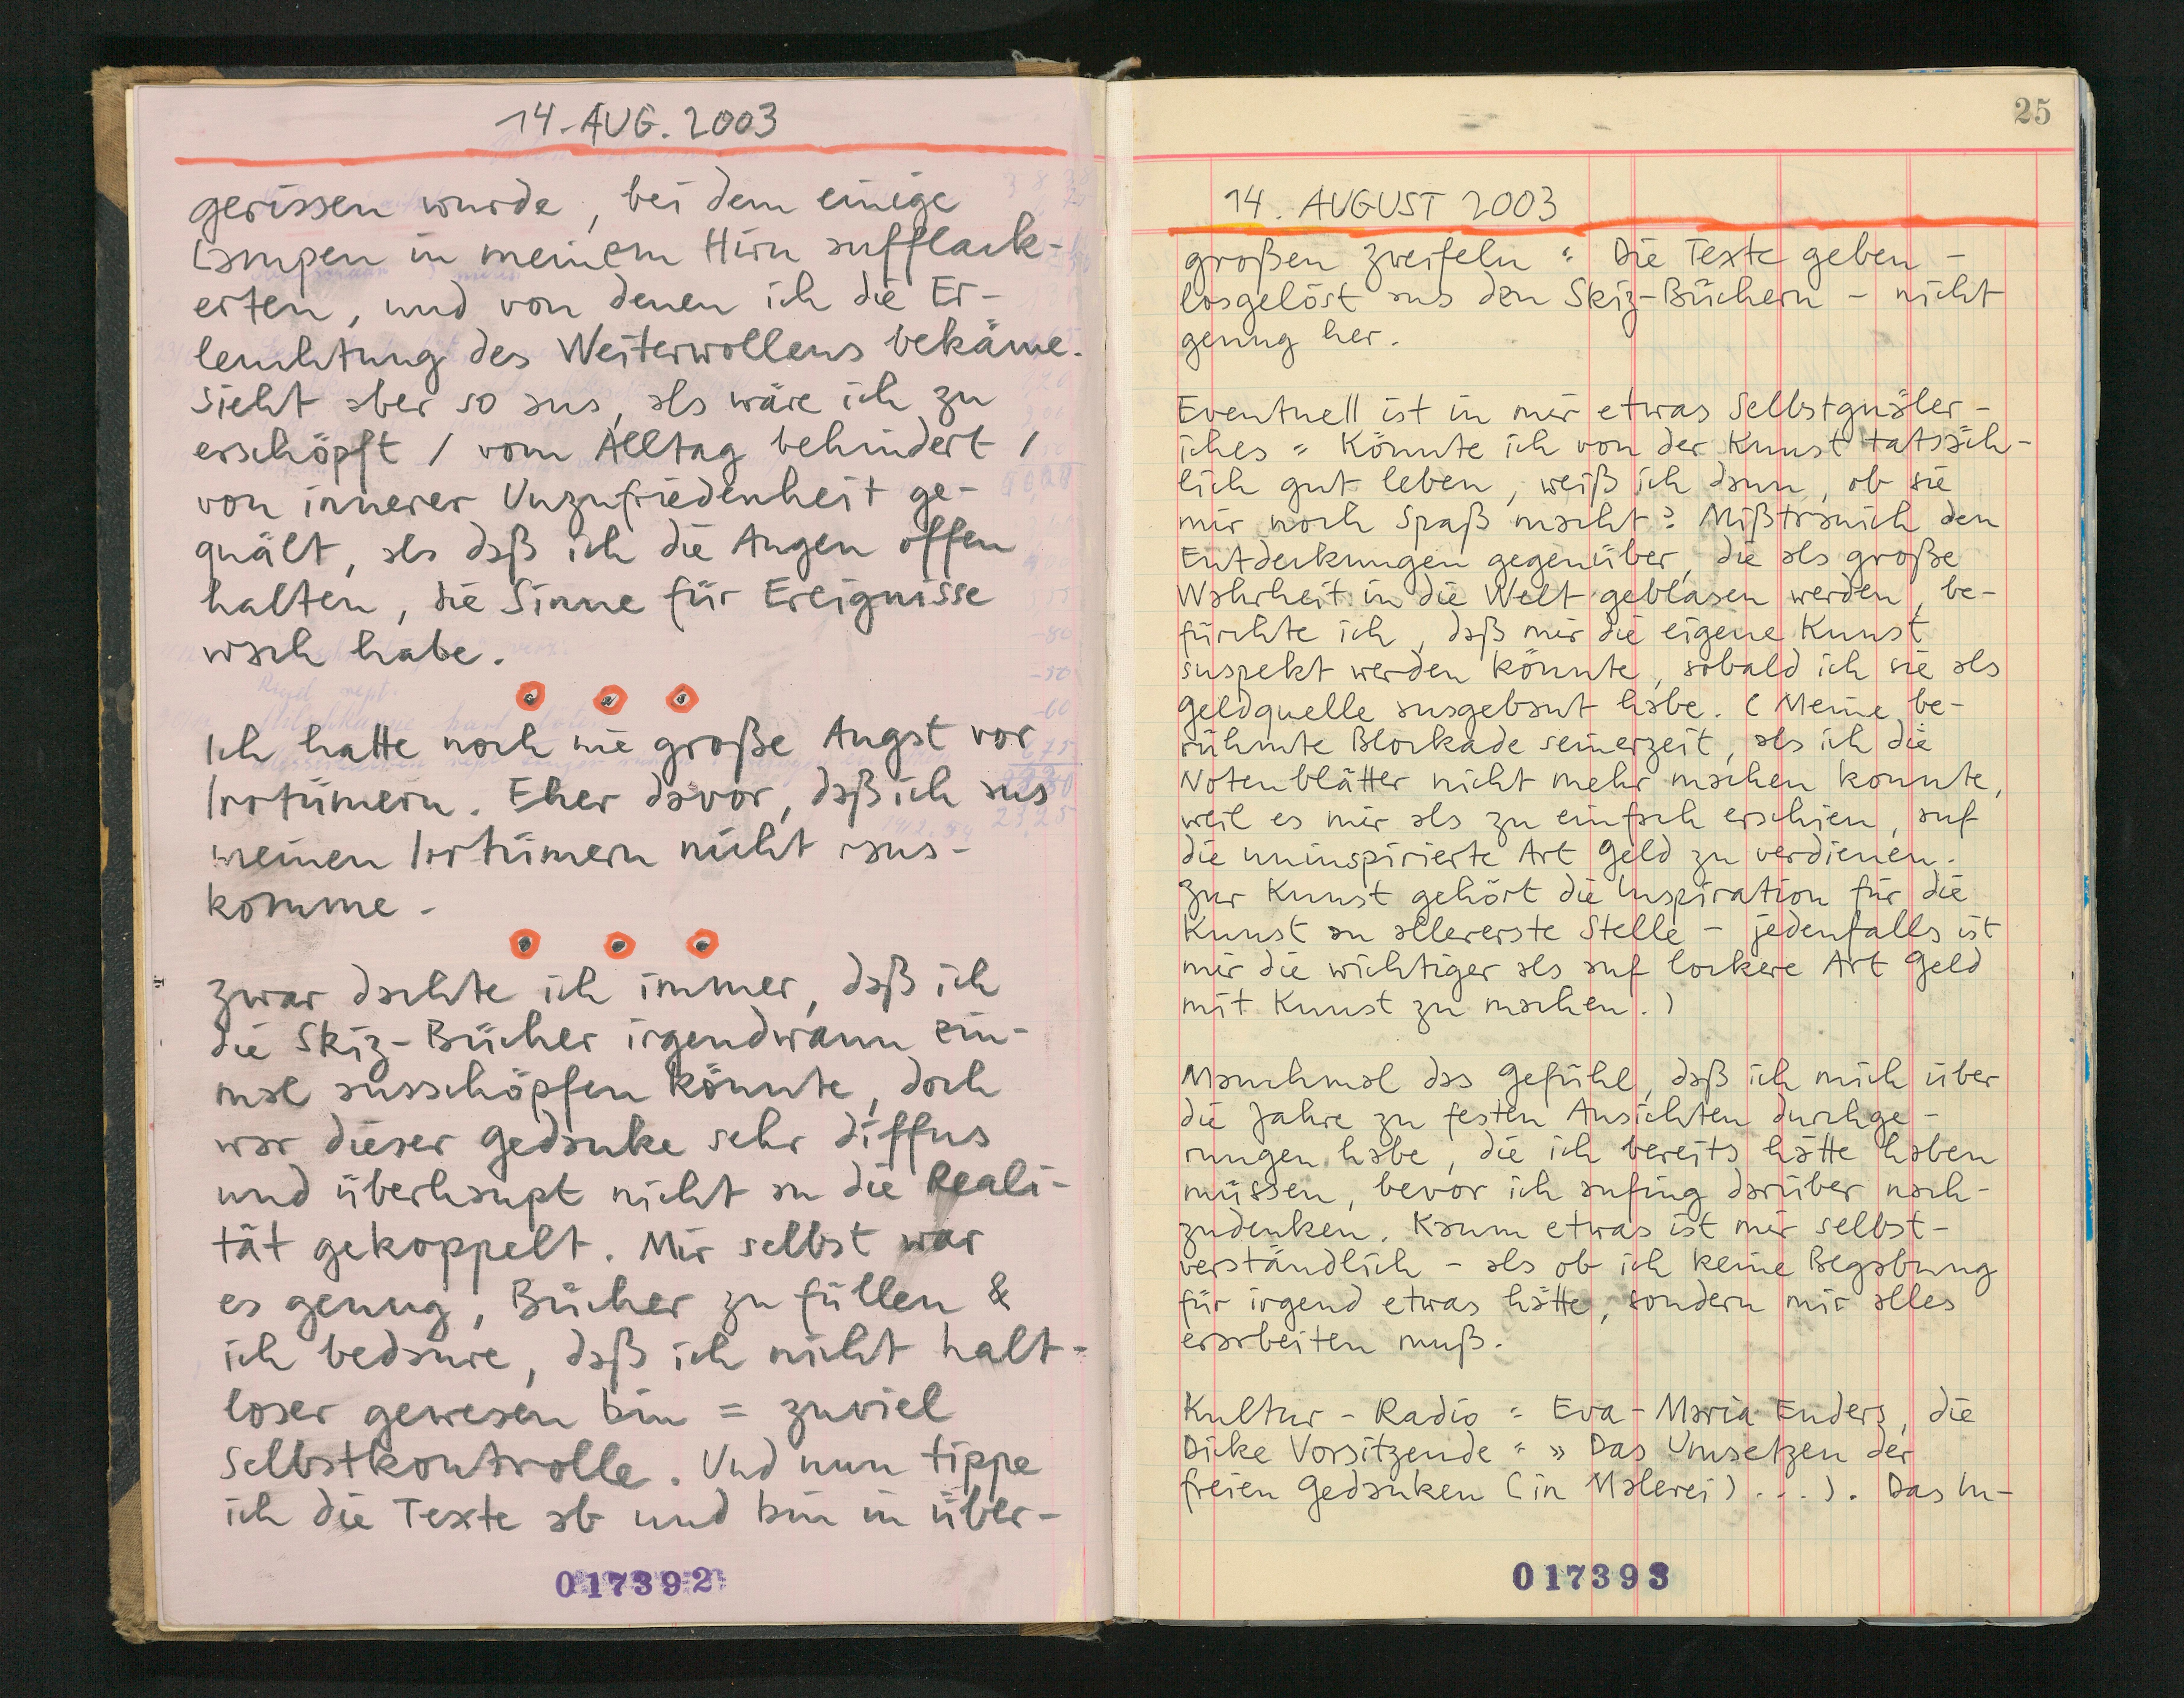 14. AUG. 2003
gerissen wurde, bei dem einige
Lampen in meinem Hirn aufflack-
erten, und von denen ich die Er-
leuchtung des Weiterwollens bekäme.
Sieht aber so aus, als wäre ich zu
erschöpft / vom Alltag behindert /
von innerer Unzufriedenheit ge-
quält, als daß ich die Augen offen
halten, die Sinne für Ereignisse
wach habe.
Ich hatte noch nie große Angst vor
Irrtümern. Eher davor, daß ich aus
meinen Irrtümern nicht raus-
komme.
Zwar dachte ich immer, daß ich
die Skiz-Bücher irgendwann ein-
mal ausschöpfen könnte, doch
war dieser Gedanke sehr diffus
und überhaupt nicht an die Reali-
tät gekoppelt. Mir selbst war
es genug, Bücher zu füllen &
ich bedaure, daß ich nicht halt-
loser gewesen bin = zuviel
Selbstkontrolle. Und nun tippe
ich die Texte ab und bin in über-
017392
25
14. AUGUST 2003
großen Zweifeln = Die Texte geben -
losgelöst aus den Skiz-Büchern - nicht
genug her.
Eventuell ist in mir etwas Selbstquäler-
iches = Könnte ich von der Kunst tatsäch-
lich gut leben, weiß ich dann, ob sie
mir noch Spaß macht? Mißtrauich den
Entdeckungen gegenüber, die als große
Wahrheit in die Welt geblasen werden, be-
fürchte ich, daß mir die eigene Kunst
suspekt werden könnte, sobald ich sie als
Geldquelle ausgebaut habe. (Meine be-
rühmte Blockade seinerzeit, als ich die
Notenblätter nicht mehr machen konnte,
weil es mir als zu einfach erschien, auf
die uninspirierte Art Geld zu verdienen.
Zur Kunst gehört die Inspiration für die
Kunst an allererste Stelle - jedenfalls ist
mir die wichtiger als auf lockere Art Geld
mit Kunst zu machen.)
Manchmal das Gefühl, daß ich mich über
die Jahre zu festen Ansichten durchge-
rungen habe, die ich bereits hätte haben
müssen, bevor ich anfing darüber nach-
zudenken. Kaum etwas ist mir selbst-
verständlich - als ob ich keine Begabung
für irgend etwas hätte, sondern mir alles
erarbeiten muß.
Kultur-Radio = Eva-Maria Enders, die
Dicke Vorsitzende = » Das Umsetzen der
freien Gedanken (in Malerei) ...). Das In-
017393